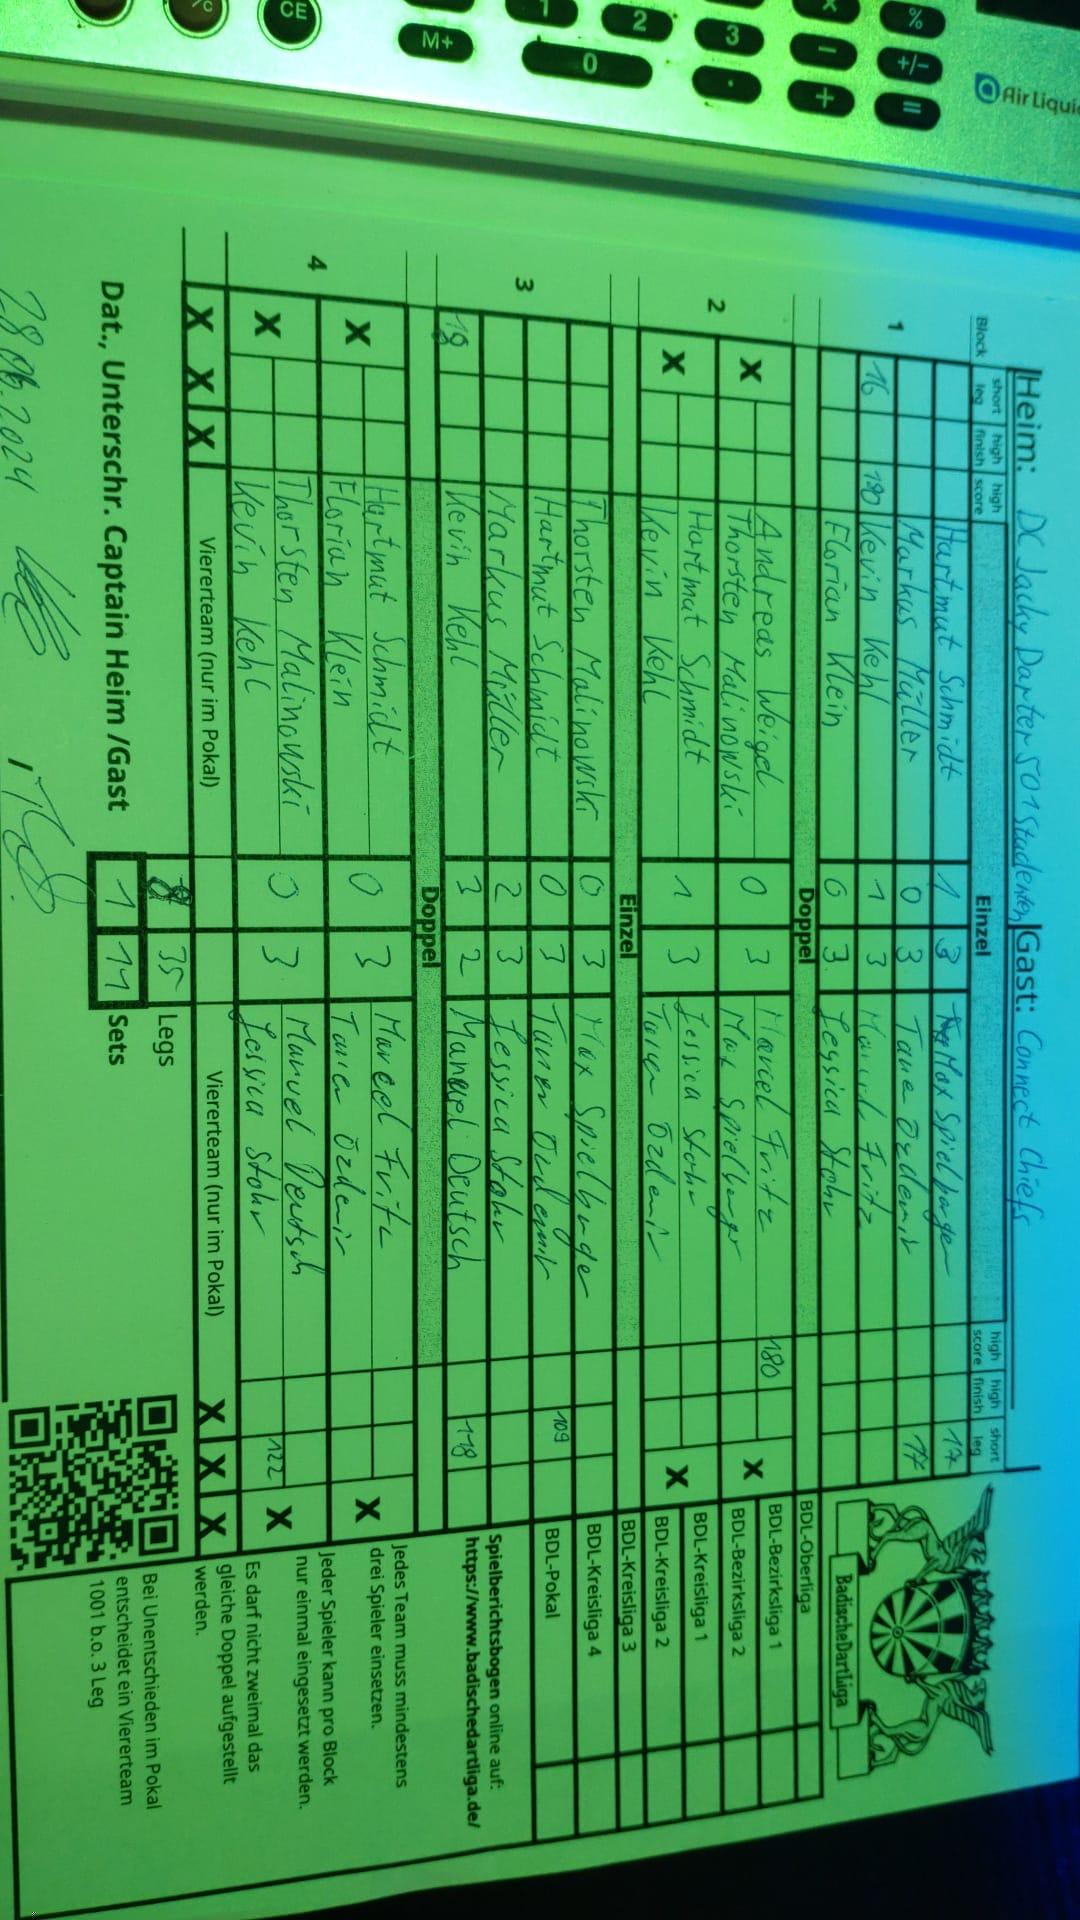 CE
M+
1
2
3
0
.
×
-
+
%
+/-
=
Air Liquid
Heim: DC Jacky Darter 501 Studenten Gast: Connect Chiefs
Block short leg high finish high score Einzel high score high finish short leg
1 Hartmut Schmidt 1 3 Max Spielberger 17
Markus Müller 0 3 Taner Özdemir 17
16 180 Kevin Kehl 1 3 Fritz
Florian Klein 0 3 Jessica Stohr
Doppel
2 X Andreas Weigel 0 3 Marcel Fritz 180 X
Thorsten Malinowski Max Spielberger
X Hartmut Schmidt 1 3 Jessica Stohr X
Kevin Kehl Taner Özdemir
Einzel
3 Thorsten Malinowski 0 3 Max Spielberger
Hartmut Schmidt 0 3 Taner Özdemir 109
Markus Müller 2 3 Jessica Stohr
18 Kevin Kehl 3 2 Manuel Deutsch 118
Doppel
4 X Hartmut Schmidt 0 3 Marcel Fritz X
Florian Klein Taner Özdemir
X Thorsten Malinowski 0 3 Manuel Deutsch 122 X
Kevin Kehl Jessica Stohr
X X X Viererteam (nur im Pokal) Viererteam (nur im Pokal) X X X
8 35 Legs
Dat., Unterschr. Captain Heim /Gast 1 11 Sets
28.06.2024
BadischeDartLiga
BDL-Oberliga
BDL-Bezirksliga 1
BDL-Bezirksliga 2
BDL-Kreisliga 1
BDL-Kreisliga 2
BDL-Kreisliga 3
BDL-Kreisliga 4
BDL-Pokal
Spielberichtsbogen online auf:
https://www.badischedartliga.de/
Jedes Team muss mindestens
drei Spieler einsetzen.
Jeder Spieler kann pro Block
nur einmal eingesetzt werden.
Es darf nicht zweimal das
gleiche Doppel aufgestellt
werden.
Bei Unentschieden im Pokal
entscheidet ein Viererteam
1001 b.o. 3 Leg